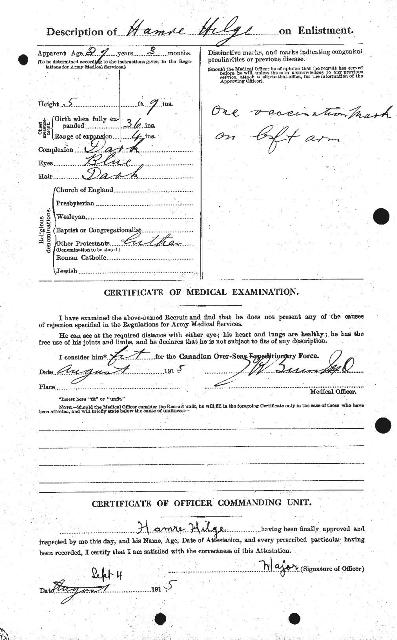 Description of Hamre Hilge on Enlistment.
Apparent Age 29 years 3 months
(To be determined according to the instructions given in the Regulations for Army Medical Services.)
Height 5 ft. 9 ins.
Chest measurement
Girth when fully expanded 36 ins.
Range of expansion ins.
Complexion Dark
Eyes Blue
Hair Dark
Religious denominations.
Church of England
Presbyterian
Wesleyan
Baptist or Congregationalist
Other Protestants Luther
(Denomination to be stated.)
Roman Catholic
Jewish
Distinctive marks, and marks indicating congenital peculiarities or previous disease.
(Should the Medical Officer be of opinion that the recruit has served before, he will, unless the man acknowledges to any previous service, attach a slip to that effect, for the information of the Approving Officer).
One vaccination Mark
on left arm
CERTIFICATE OF MEDICAL EXAMINATION.
I have examined the above-named Recruit and find that he does not present any of the causes
of rejection specified in the Regulations for Army Medical Services.
He can see at the required distance with either eye; his heart and lungs are healthy; he has the
free use of his joints and limbs, and he declares that he is not subject to fits of any description.
I consider him* fit for the Canadian Over-Seas Expeditionary Force.
Date August 1915
Place
Medical Officer.
*Insert here "fit" or "unfit."
NOTE.—Should the Medical Officer consider the Recruit unfit, he will fill in the foregoing Certificate only in the case of those who have
been attested, and will briefly state below the cause of unfitness:—
CERTIFICATE OF OFFICER COMMANDING UNIT.
Hamre Hilge having been finally approved and
inspected by me this day, and his Name, Age, Date of Attestation, and every prescribed particular having
been recorded, I certify that I am satisfied with the correctness of this Attestation.
Major (Signature of Officer)
Sept 4
Date August 1915